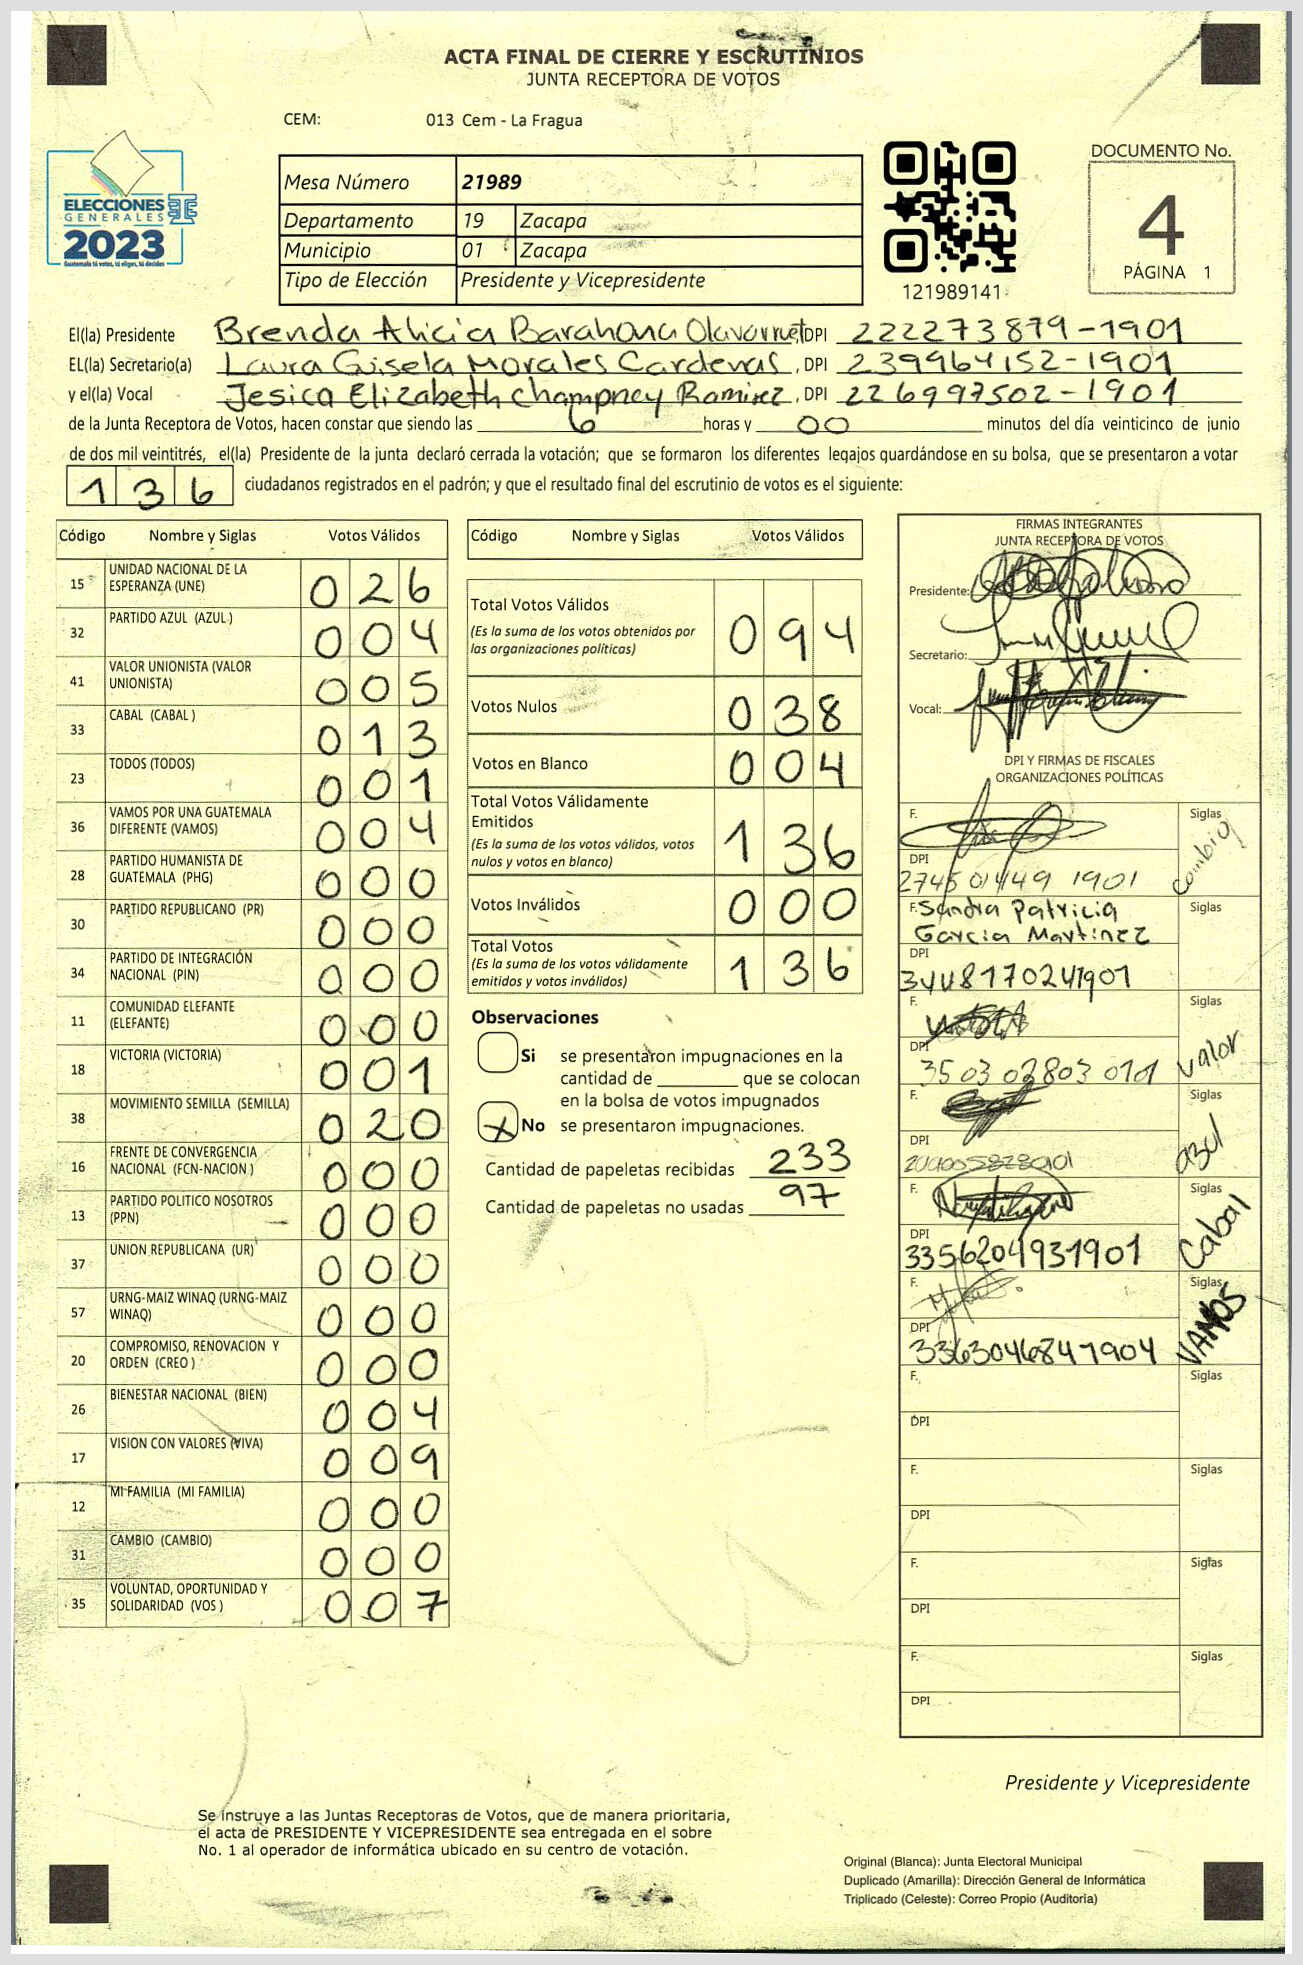 ACTA FINAL DE CIERRE Y ESCRUTINIOS
JUNTA RECEPTORA DE VOTOS
CEM: 013 Cem - La Fragua
ELECCIONES
GENERALES
2023
Guatemala tú votas, tú eliges, tú decides
Mesa Número 21989
Departamento 19 Zacapa
Municipio 01 Zacapa
Tipo de Elección Presidente y Vicepresidente
121989141
DOCUMENTO No.
4
PÁGINA 1
El(la) Presidente Brenda Alicia Barahona DPI 222273879-1901
EL(la) Secretario(a) Laura Gisela Morales Cardenas, DPI 239964152-1901
y el(la) Vocal Jesica Elizabeth Champney Ramirez, DPI 226997502-1901
de la Junta Receptora de Votos, hacen constar que siendo las 6 horas y 00 minutos del día veinticinco de junio
de dos mil veintitrés, el(la) Presidente de la junta declaró cerrada la votación; que se formaron los diferentes legajos guardándose en su bolsa, que se presentaron a votar
136 ciudadanos registrados en el padrón; y que el resultado final del escrutinio de votos es el siguiente:
Código Nombre y Siglas Votos Válidos
15 UNIDAD NACIONAL DE LA
ESPERANZA (UNE) 026
32 PARTIDO AZUL (AZUL) 004
41 VALOR UNIONISTA (VALOR
UNIONISTA) 005
33 CABAL (CABAL) 013
23 TODOS (TODOS) 001
36 VAMOS POR UNA GUATEMALA
DIFERENTE (VAMOS) 004
28 PARTIDO HUMANISTA DE
GUATEMALA (PHG) 000
30 PARTIDO REPUBLICANO (PR) 000
34 PARTIDO DE INTEGRACIÓN
NACIONAL (PIN) 000
11 COMUNIDAD ELEFANTE
(ELEFANTE) 000
18 VICTORIA (VICTORIA) 001
38 MOVIMIENTO SEMILLA (SEMILLA) 020
16 FRENTE DE CONVERGENCIA
NACIONAL (FCN-NACION) 000
13 PARTIDO POLITICO NOSOTROS
(PPN) 000
37 UNION REPUBLICANA (UR) 000
57 URNG-MAIZ WINAQ (URNG-MAIZ
WINAQ) 000
20 COMPROMISO, RENOVACION Y
ORDEN (CREO) 000
26 BIENESTAR NACIONAL (BIEN) 004
17 VISION CON VALORES (VIVA) 009
12 MI FAMILIA (MI FAMILIA) 000
31 CAMBIO (CAMBIO) 000
35 VOLUNTAD, OPORTUNIDAD Y
SOLIDARIDAD (VOS) 007
Código Nombre y Siglas Votos Válidos
Total Votos Válidos 094
(Es la suma de los votos obtenidos por
las organizaciones políticas)
Votos Nulos 038
Votos en Blanco 004
Total Votos Válidamente
Emitidos 136
(Es la suma de los votos válidos, votos
nulos y votos en blanco)
Votos Inválidos 000
Total Votos 136
(Es la suma de los votos válidamente
emitidos y votos inválidos)
Observaciones
Si se presentaron impugnaciones en la
cantidad de ________ que se colocan
en la bolsa de votos impugnados
X No se presentaron impugnaciones.
Cantidad de papeletas recibidas 233
Cantidad de papeletas no usadas 97
FIRMAS INTEGRANTES
JUNTA RECEPTORA DE VOTOS
Presidente:
Secretario:
Vocal:
DPI Y FIRMAS DE FISCALES
ORGANIZACIONES POLÍTICAS
F. Siglas cambio
DPI
F. Sandra Patricia Siglas
Garcia Martinez
DPI
F. Siglas Valor
DPI
3503 02803 0101
F. Siglas azul
DPI
F. Siglas Cabal
DPI
3356204931901
F. Siglas VAMOS
DPI
3363046841904
F. Siglas
DPI
F. Siglas
DPI
F. Siglas
DPI
F. Siglas
DPI
Presidente y Vicepresidente
Se instruye a las Juntas Receptoras de Votos, que de manera prioritaria,
el acta de PRESIDENTE Y VICEPRESIDENTE sea entregada en el sobre
No. 1 al operador de informática ubicado en su centro de votación.
Original (Blanca): Junta Electoral Municipal
Duplicado (Amarilla): Dirección General de Informática
Triplicado (Celeste): Correo Propio (Auditoría)